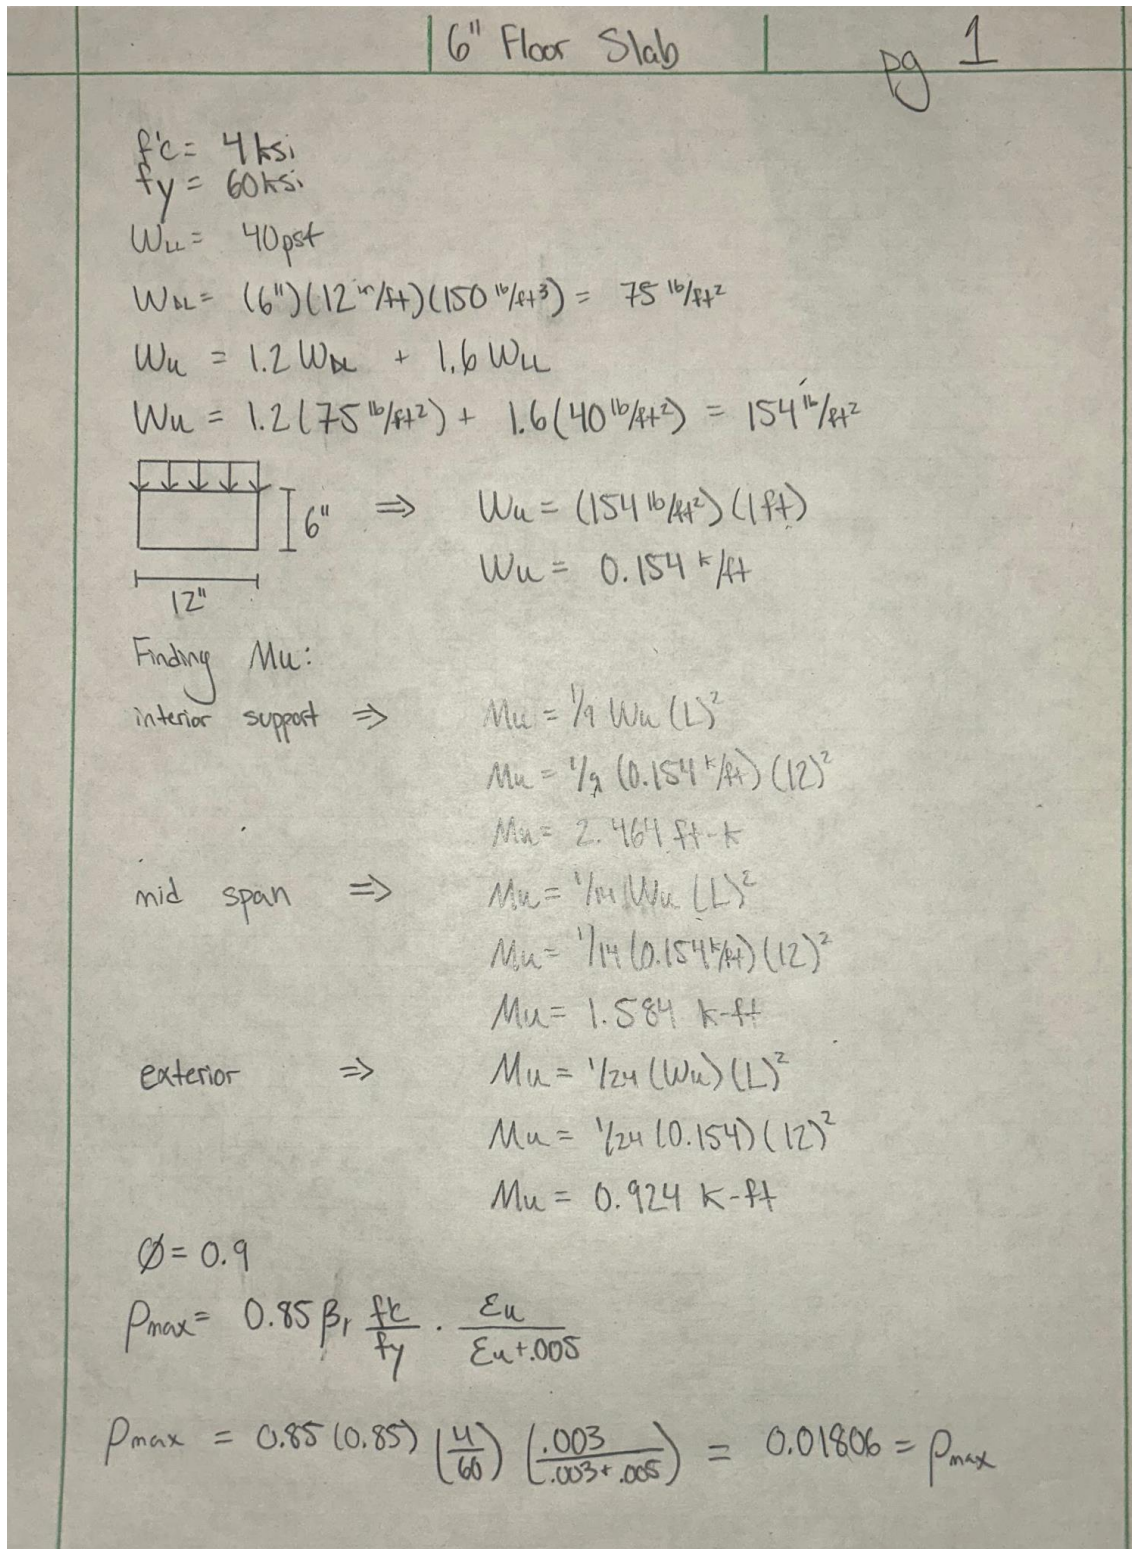 6" Floor Slab
pg 1
f'c = 4 ksi
fy = 60 ksi
W_LL = 40 psf
W_DL = (6")(12 in/ft)(150 lb/ft³) = 75 lb/ft²
Wu = 1.2 W_DL + 1.6 W_LL
Wu = 1.2(75 lb/ft²) + 1.6(40 lb/ft²) = 154 lb/ft²
6" ⇒ Wu = (154 lb/ft²)(1ft)
Wu = 0.154 k/ft
12"
Finding Mu:
interior support ⇒ Mu = 1/9 Wu (L)²
Mu = 1/9 (0.154 k/ft) (12)²
Mu = 2.464 ft-k
mid span ⇒ Mu = 1/14 Wu (L)²
Mu = 1/14 (0.154 k/ft) (12)²
Mu = 1.584 k-ft
exterior ⇒ Mu = 1/24 (Wu) (L)²
Mu = 1/24 (0.154) (12)²
Mu = 0.924 k-ft
Ø = 0.9
ρmax = 0.85 β₁ f'c/fy · εu/(εu+.005)
ρmax = 0.85 (0.85) (4/60) (.003/(.003+.005)) = 0.01806 = ρmax